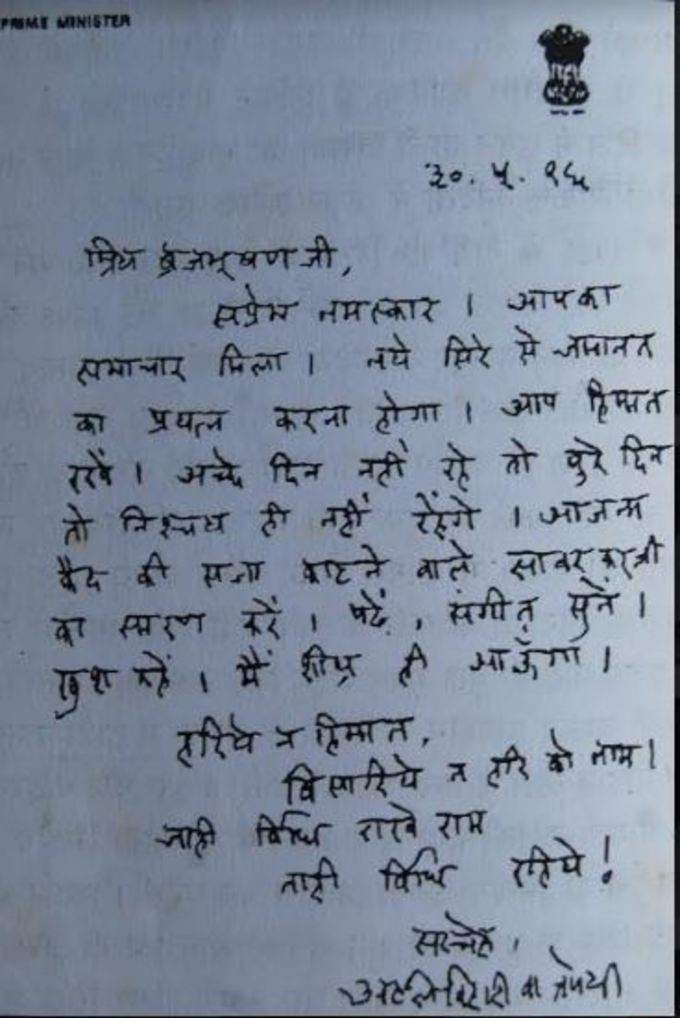 PRIME MINISTER
३०. ५. ९६
प्रिय ब्रजभूषण जी,
सप्रेम नमस्कार । आपका
समाचार मिला । नये सिरे से जमानत
का प्रयत्न करना होगा । आप हिम्मत
रखें । अच्छे दिन नहीं रहे तो बुरे दिन
तो निश्चय ही नहीं रहेंगे । आजन्म
कैद की सजा काटने वाले सावरकर जी
का स्मरण करें । पढ़ें, संगीत सुनें ।
खुश रहें । मैं शीघ्र ही आऊँगा ।
हारिये न हिम्मत,
विसारिये न हरि को नाम ।
जाही विधि राखे राम
ताही विधि रहिये !
सस्नेह ।
अटल बिहारी वाजपेयी